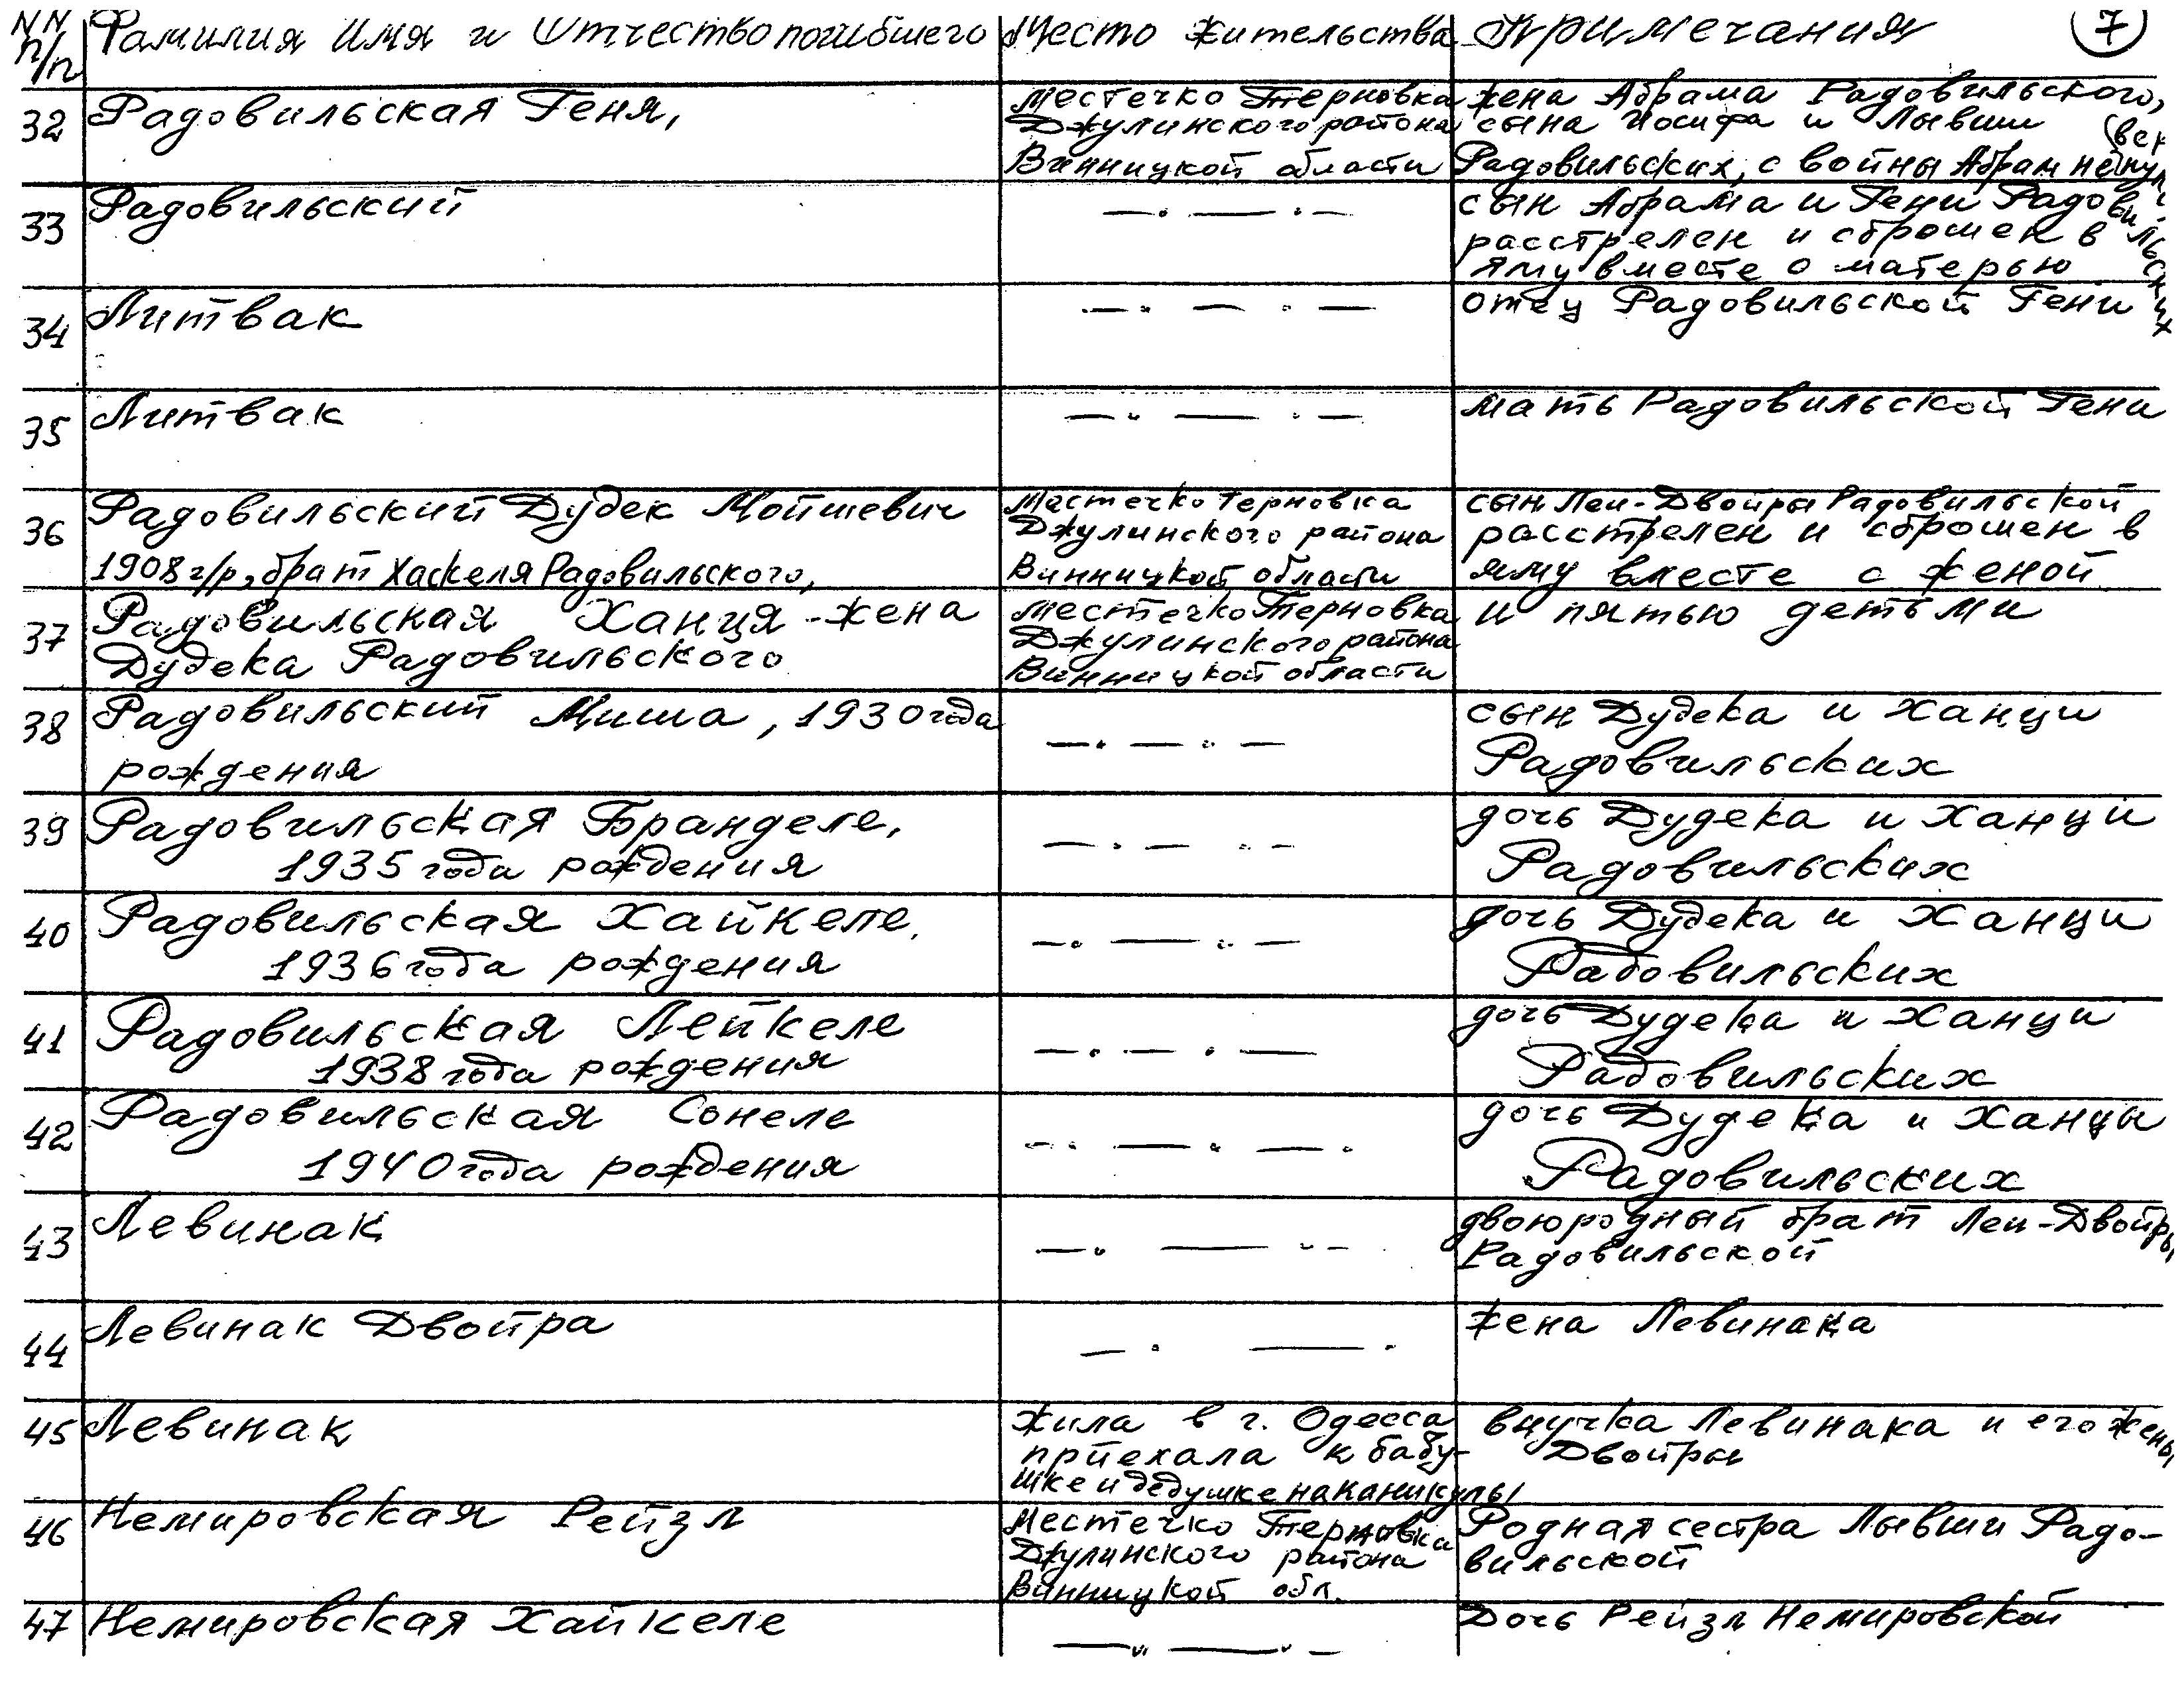 NN п/п Фамилия Имя и Отчество погибшего Место жительства Примечания 7
32 Радовильская Геня,
местечко Терновка
Джулинского района
Винницкой области
жена Абрама Радовильского,
сына Иосифа и Лывши
Радовильских, с войны Абрам не
33 Радовильский
—.—.—
сын Абрама и Гени Радовильских
расстрелен и сброшен в
яму вместе с матерью
34 Литвак
—.—.—
отец Радовильской Гени
35 Литвак
—"—"—
мать Радовильской Гени
36 Радовильский Дудек Мойшевич
1908 г/р, брат Хаскеля Радовильского,
Местечко Терновка
Джулинского района
Винницкой области
сын Леи-Двойры Радовильской
расстрелен и сброшен в
яму вместе с женой
37 Радовильская Ханця - жена
Дудека Радовильского
местечко Терновка
Джулинского района
Винницкой области
и пятью детьми
38 Радовильский Миша, 1930 года
рождения
—.—.—
сын Дудека и Ханци
Радовильских
39 Радовильская Бранделе,
1935 года рождения
—.—.—
дочь Дудека и Ханци
Радовильских
40 Радовильская Хайкеле,
1936 года рождения
—.—.—
дочь Дудека и Ханци
Радовильских
41 Радовильская Лейкеле
1938 года рождения
—.—.—
дочь Дудека и Ханци
Радовильских
42 Радовильская Сонеле
1940 года рождения
—.—.—.
дочь Дудека и Ханцы
Радовильских
43 Левинак
—.—"—
двоюродный брат Леи-Двойры
Радовильской
44 Левинак Двойра
—.—.
жена Левинака
45 Левинак
жила в г. Одесса
приехала к бабу-
шке и дедушке на каникулы
внучка Левинака и его жены
Двойры
46 Немировская Рейзл
Местечко Терновка
Джулинского района
Винницкой обл.
Родная сестра Лывши Радо-
вильской
47 Немировская Хайкеле
—"—"—
Дочь Рейзл Немировской